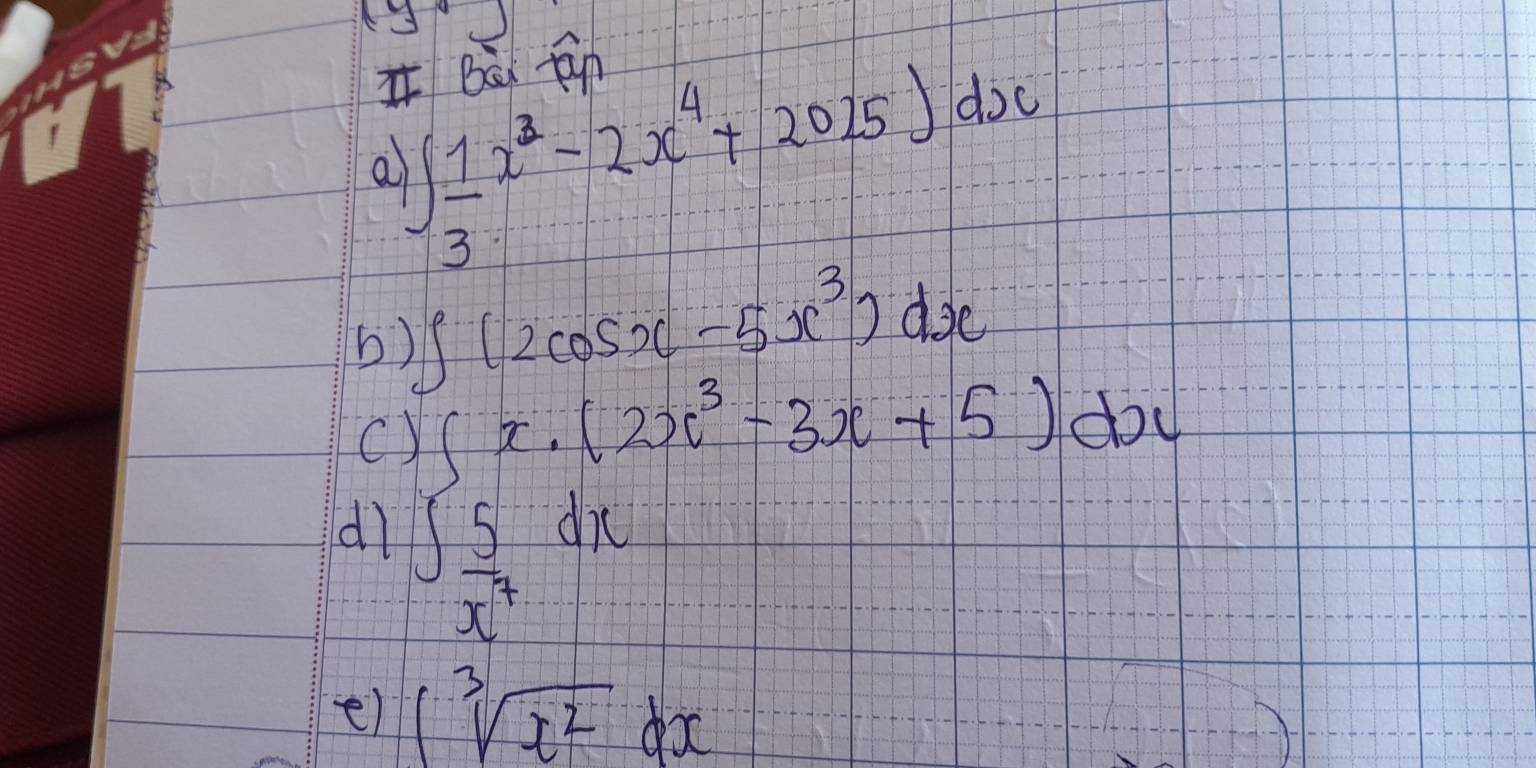 FASHIO
LA
II Bài tập
a) ∫ 1/3 x³ - 2x⁴ + 2025) dx
b) ∫ (2cosx - 5x³) dx
c) ∫ x.(2x³ - 3x + 5) dx
d) ∫ 5/x⁷ dx
e) ∫ ³√x² dx